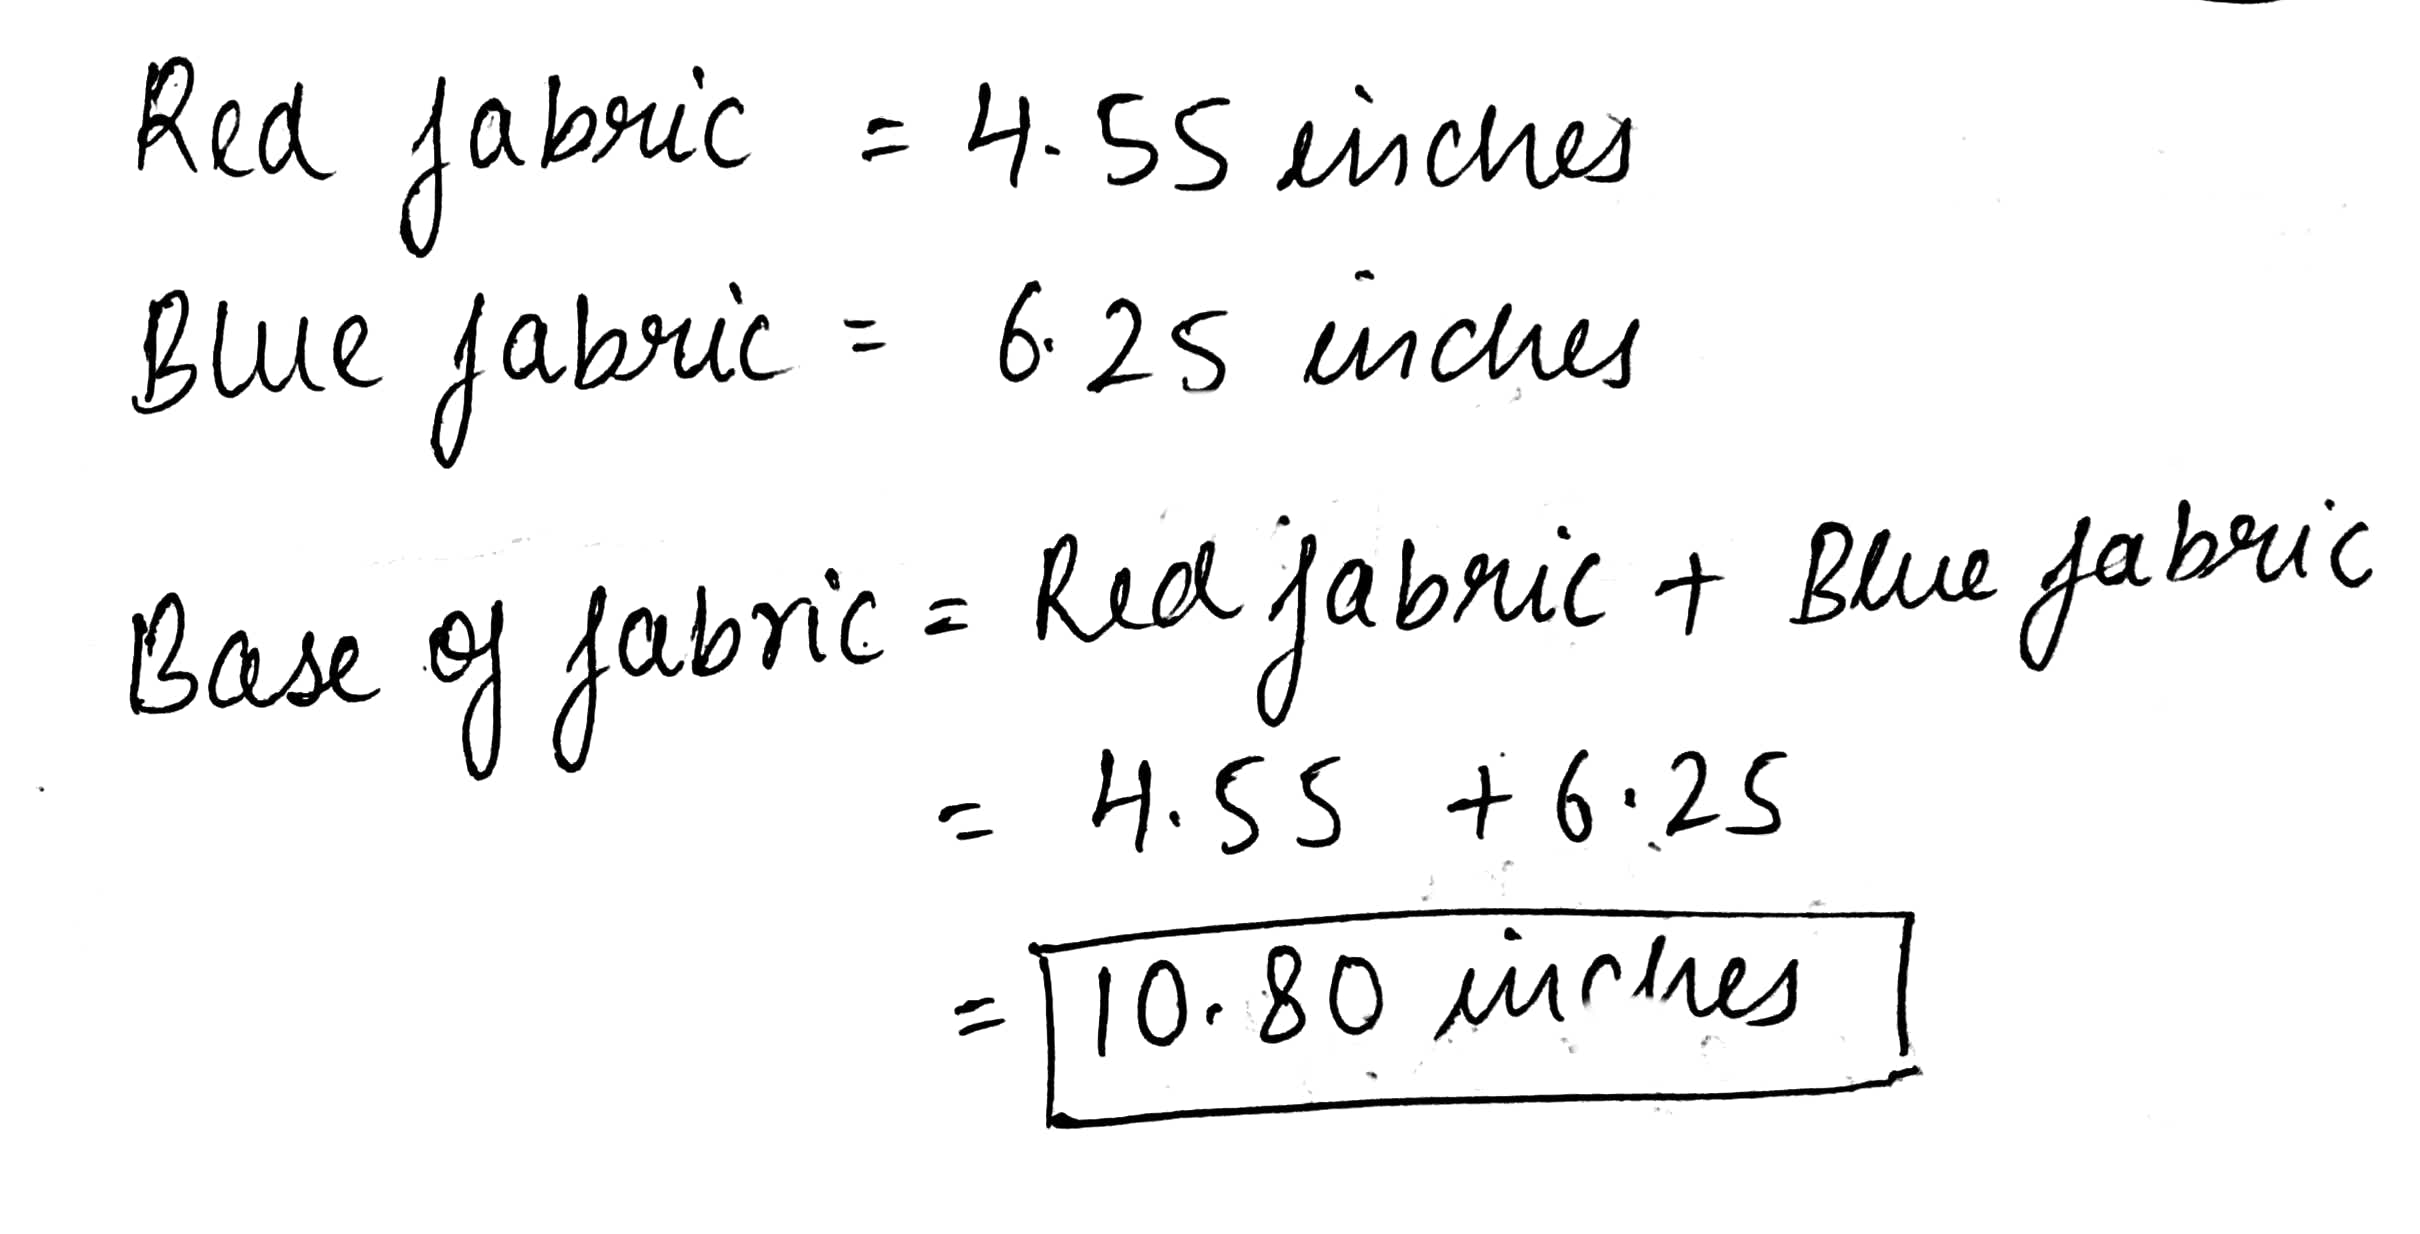 Red fabric = 4.55 inches
Blue fabric = 6.25 inches
Base of fabric = Red fabric + Blue fabric
= 4.55 + 6.25
= 10.80 inches